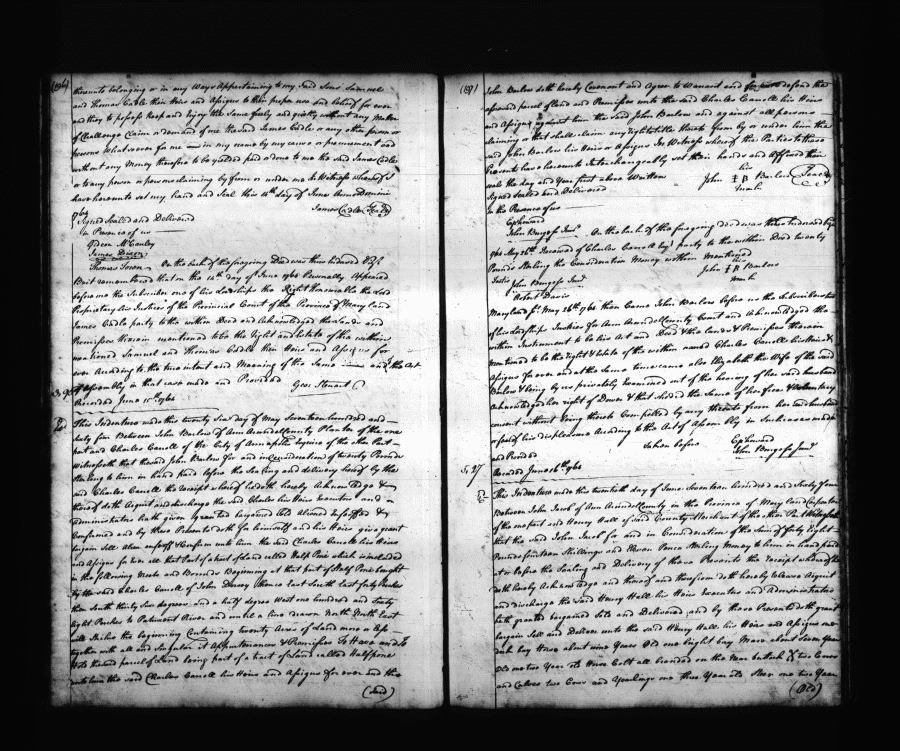 (184)
thereunto belonging or in any Ways Appertaining to my Said Sons Samuel
and Thomas Cadle their Heirs and Assigns to their proper use and behoof for ever
and they to possess keep and Enjoy the Same freely and quietly without any Matter
of Challenge Claim or demand of me the said James Cadle or any other person or
persons Whatsoever for me in my name by my cause or procurement and
without any Money therefore to be yeilded paid or done to me the said James Cadle
or to any person or persons claiming by from or under me In Witness whereof I
have hereunto set my hand and Seal this 14th day of June Anno Domini
1764 James Cadle (Seal)
Signed Sealed and Delivered
in Presence of us
Gideon McCauley
James Dixon
Thomas Towson On the back of the foregoing Deed was thus Indorsed Viz.
Be it remembered that on the 14th day of June 1764 Personally Appeared
before me the Subscriber one of his Lordships the Right Honorable the Lord
Proprietary his Justices of the Provincial Court of the Province of Maryland
James Cadle party to the within Deed and Acknowledged the Lands and
Premisses therein mentioned to be the Right and Estate of the within
mentioned Samuel and Thomas Cadle their Heirs and Assigns for
ever According to the true intent and Meaning of the Same and the Act
of Assembly in that case made and Provided Geo Steuart
Recorded June 15th 1764
This Indenture made this twenty Sixth day of May Seventeen hundred and
Sixty four Between John Barlow of Ann Arundel County Planter of the one
Part and Charles Carroll of the City of Annapolis Esquire of the other Part
Witnesseth that the said John Barlow for and in Consideration of twenty Pounds
Sterling to him in hand Paid before the Sealing and delivery hereof by the
said Charles Carroll the receipt whereof he doth hereby Acknowledge &
thereof doth Acquit and discharge the Said Charles his Heirs Executors and
Administrators hath given granted bargained Sold Aliened Enfeoffed &
Confirmed and by these Presents doth for himself and his Heirs give grant
bargain Sell Alien enfeoff & Confirm unto him the Said Charles Carroll his Heirs
and Assigns for ever all that Part of a tract of Land called Half Pone which is included
in the following Meets and Bounds Beginning at that part of Half Pone bought
by the said Charles Carroll of John Dorsey thence East South East forty Perches
then South thirty Six degrees and a half degree West one hundred and Sixty
Eight Perches to Patuxent River and until a line drawn North North East
will Strike the beginning Containing twenty Acres of Land more or less
together with all and Singular it Appurtenances & Premisses To Have and To
Hold the said parcel of Land being part of a tract of Land called Halfpone
unto him the said Charles Carroll his Heirs and Assigns for ever and the
(said)
John Barlow doth hereby Covenant and Agree to Warrant and for ever defend the
aforesaid parcel of land and Premisses unto the said Charles Carroll his Heirs
and Assigns against him the Said John Barlow and against all persons
claiming or that shall claim any Right title thereto from by or under him the
said John Barlow his Heirs or Assigns In Witness whereof the Parties to these
Presents have hereunto Interchangeably set their hands and Affixed their
seals the day and Year first above Written his
Signed Sealed and Delivered John I B Barlow (Seal)
in the Presence of us mark
Eph Howard
John Burgess Junr. On the back of the foregoing deed was thus Indorsed Viz
1764 May 26th Received of Charles Carroll Esqr. party to the within Deed twenty
Pounds Sterling the Consideration Money within Mentioned
his
Testes John Burgess Junr John I B Barlow
Robert Davis mark
Maryland ss. May 26th 1764 then Came John Barlow before us the Subscribers two
of his Lordships Justices for Ann Arundel County Court and Acknowledged the
within Instrument to be his Act and Deed & the lands & Premisses therein
mentioned to be the Right & Estate of the within named Charles Carroll his Heirs &
Assigns for ever and at the Same time came also Elizabeth the Wife of the said
Barlow & being by us privately Examined out of the hearing of her said husband
Acknowledged her right of Dower & that she did the Same of her free & Voluntary
consent without being thereto Compelled by any threats from her said husband
or fear of his displeasure According to the Act of Assembly in Such cases made
and Provided
Taken before Eph Howard
John Burgess Junr
Recorded June 16th 1764
This Indenture made this twentieth day of June Seventeen hundred and Sixty four
Between John Jacob of Ann Arundel County in the Province of Maryland Carpenter
of the one part and Henry Hall of said County Merchant of the other Part Witnesseth
that the said John Jacob for and in Consideration of the Sum of forty Eight
Pounds fourteen Shillings and Seven Pence Sterling Money to him in hand paid
at or before the Sealing and Delivery of these Presents the receipt whereof he
doth hereby Acknowledge and thereof and therefrom doth hereby Release Acquit
and discharge the said Henry Hall his Heirs Executors and Administrators
hath granted bargained Sold and Delivered and by these Presents doth grant
bargain Sell and Deliver unto the said Henry Hall his Heirs and Assigns one
dark bay Horse about nine Years Old one bright bay Mare about Seven years
Old one two Year old Horse Colt all branded on the near buttock two Cows
and Calves two Cows and Yearlings one three Year old Steer one two Year
(Old)